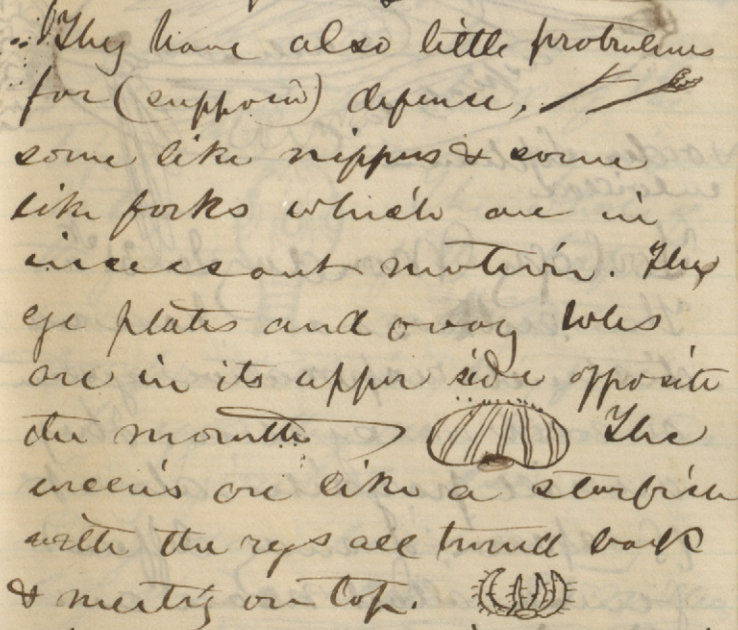 They have also little protrusions
for (supposed) defense,
some like nippers & some
like forks which are in
incessant motion. The
eye plates and ovary holes
are in its upper side opposite
the mouth The
are like a starfish
with the rays all turned back
& meeting on top.